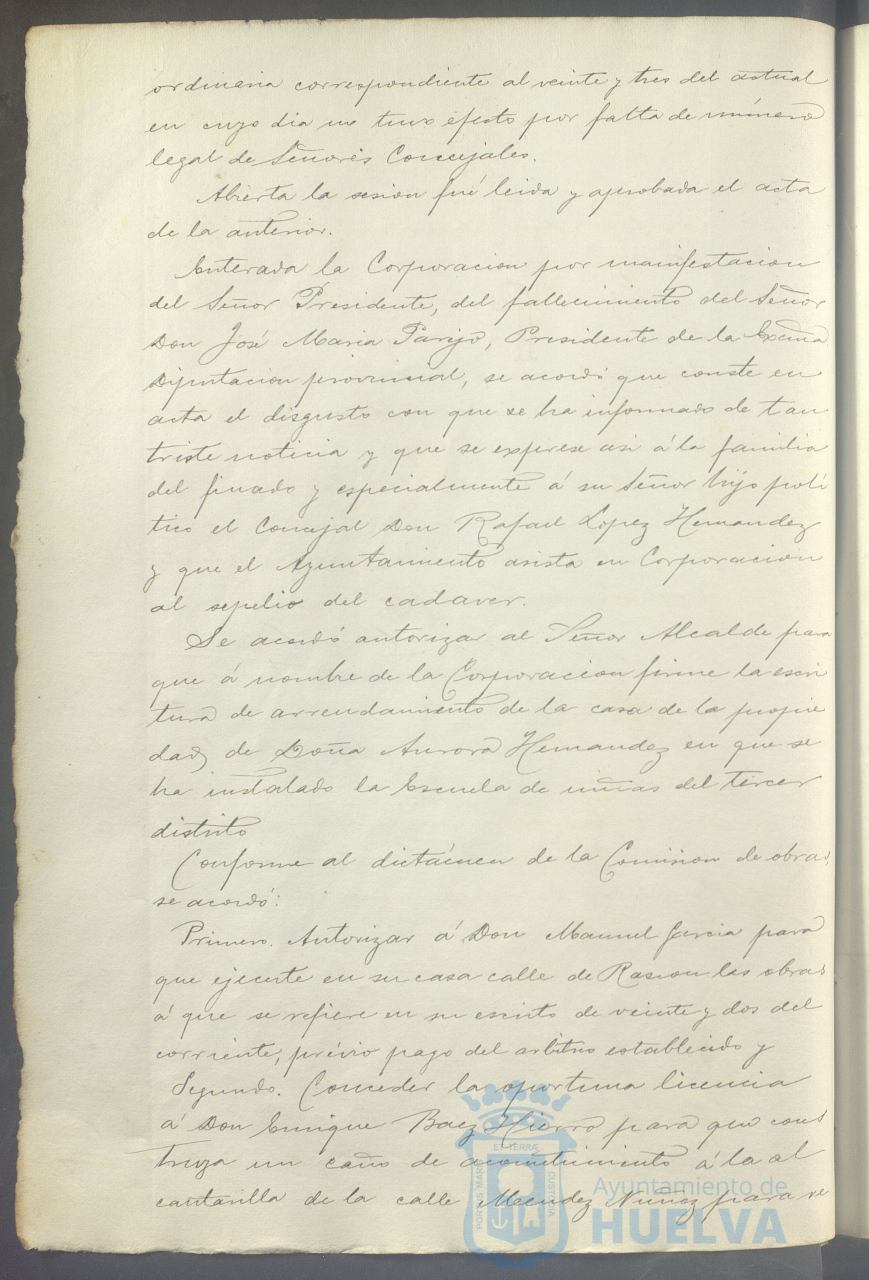 ordinaria correspondiente al veinte y tres del actual
en cuyo dia no tuvo efecto por falta de número
legal de Señores Concejales.
Abierta la sesion fué leida y aprobada el acta
de la anterior.
Enterada la Corporacion por manifestacion
del Señor Presidente, del fallecimiento del Señor
Don José Maria Parejo, Presidente de la Excma
Diputacion provincial, se acordó que conste en
acta el disgusto con que se ha informado de tan
triste noticia y que se exprese asi á la familia
del finado y especialmente á su Señor hijo poli
tico el Concejal Don Rafael Lopez Hernandez
y que el Ayuntamiento asista en Corporacion
al sepelio del cadaver.
Se acordó autorizar al Señor Alcalde para
que á nombre de la Corporacion firme la escri
tura de arrendamiento de la casa de la propie
dad de Doña Aurora Hernandez en que se
ha instalado la Escuela de niñas del tercer
distrito
Conforme al dictámen de la Comision de obras,
se acordó:
Primero. Autorizar á Don Manuel Garcia para
que ejecute en su casa calle de Rascon las obras
á que se refiere en su escrito de veinte y dos del
corriente, prévio pago del arbitrio establecido y
Segundo. Conceder la oportuna licencia
á Don Enrique Baez Hierro para que cons
truya un caño de acometimiento á la al
cantarilla de la calle Mendez Nuñez para ve
PORTUS MARIS
ET TERRÆ
CUSTODIA
Ayuntamiento de
HUELVA